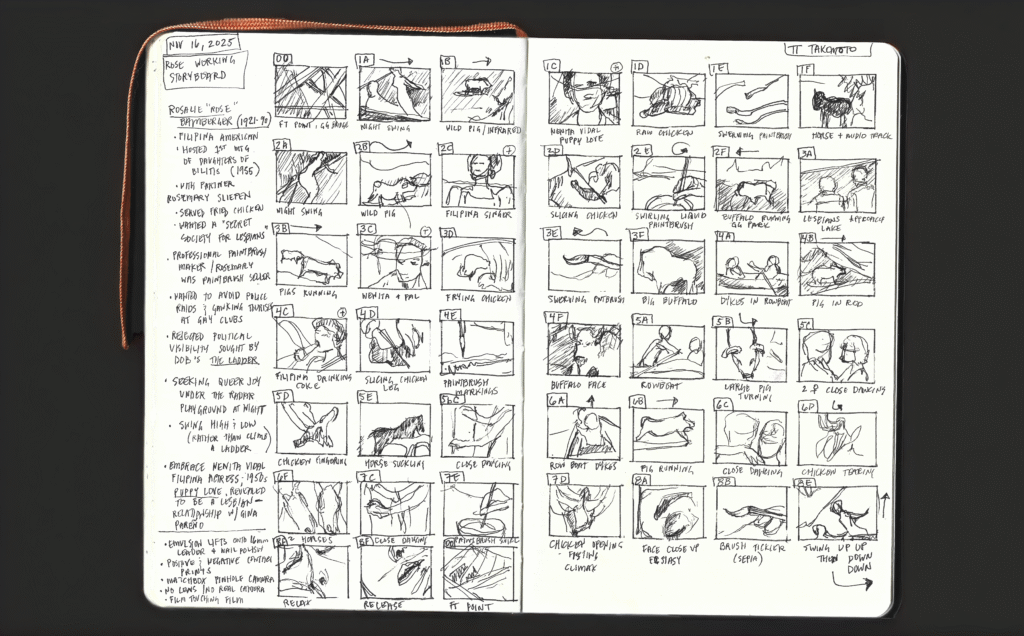 NOV 16, 2025
ROSE WORKING
STORYBOARD
ROSALIE "ROSE"
BAMBERGER (1921-90)
• FILIPINA AMERICAN
• HOSTED 1ST MTG
OF DAUGHTERS OF
BILITIS (1955)
• WITH PARTNER
ROSEMARY SLIEPEN
• SERVED FRIED CHICKEN
• WANTED A "SECRET
SOCIETY FOR LESBIANS"
• PROFESSIONAL PAINTBRUSH
MAKER / ROSEMARY
WAS PAINTBRUSH SELLER
• WANTED TO AVOID POLICE
RAIDS & GAWKING TOURISTS
AT GAY CLUBS
• REJECTED POLITICAL
VISIBILITY SOUGHT BY
DOB'S THE LADDER
• SEEKING QUEER JOY
UNDER THE RADAR
PLAYGROUND AT NIGHT
• SWING HIGH & LOW
(RATHER THAN CLIMB
A LADDER)
• EMBRACE NENITA VIDAL
FILIPINA ACTRESS - 1950s
PUPPY LOVE, REVEALED
TO BE A LESBIAN
RELATIONSHIP W/ GINA
PAREÑO
• EMULSION LIFTS ONTO 16mm
LEADER & NAIL POLISH
• POSITIVE & NEGATIVE CONTACT
PRINTS
• MATCHBOX PINHOLE CAMERA
• NO LENS / NO REAL CAMERA
• FILM TOUCHING FILM
00
1A
1B
FT POINT, GG BRIDGE
NIGHT SWING
WILD PIG / INFRARED
2A
2B
2C
NIGHT SWING
WILD PIG
FILIPINA SINGER
3B
3C
3D
PIGS RUNNING
NENITA & PAL
FRYING CHICKEN
4C
4D
4E
FILIPINA DRINKING
COKE
SLICING CHICKEN
LEG
PAINTBRUSH
MARKINGS
5D
5E
CHICKEN FINGERING
HORSE SUCKLING
CLOSE DANCING
6F
7C
7E
2 HORSES
CLOSE DANCING
PAINTBRUSH SWIRL
8F
RELAX
RELEASE
FT POINT
TT TAKEMOTO
1C
1D
1E
1F
NENITA VIDAL
PUPPY LOVE
RAW CHICKEN
SWERVING PAINTBRUSH
HORSE + AUDIO TRACK
2D
2E
2F
3A
SLICING CHICKEN
SWIRLING LIQUID
PAINTBRUSH
BUFFALO RUNNING
GG PARK
LESBIANS APPROACH
LAKE
3E
3F
4A
4B
SWERVING PNTBRUSH
BIG BUFFALO
DYKES IN ROWBOAT
PIG IN RED
4F
5A
5B
5C
BUFFALO FACE
ROWBOAT
LARGE PIG
TURNING
2 ♀ CLOSE DANCING
6A
6B
6C
6D
ROW BOAT DYKES
PIG RUNNING
CLOSE DANCING
CHICKEN TEARING
7D
8A
8B
8E
CHICKEN OPENING
FISTING
CLIMAX
FACE CLOSE UP
ECSTASY
BRUSH TICKLER
(SEPIA)
SWING UP UP
THEN DOWN
DOWN